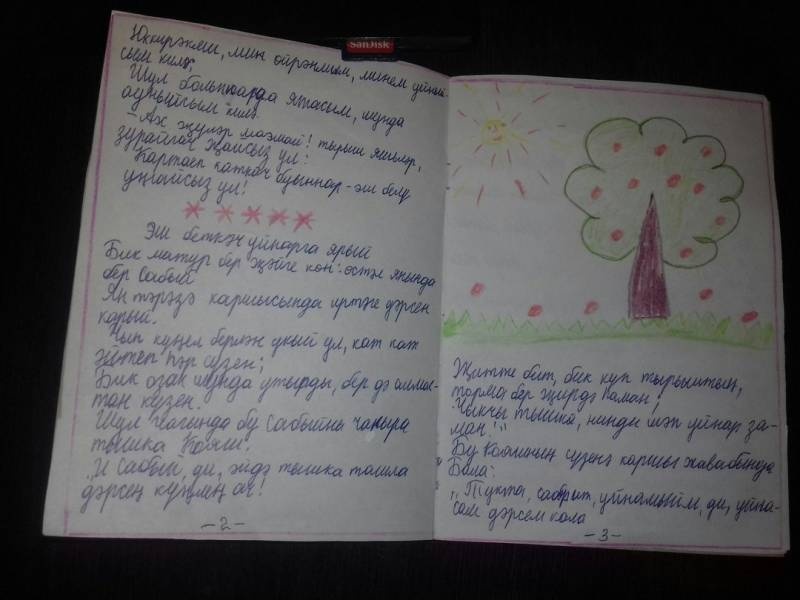 SanDisk
Юкирәкми, мин өйрәнмим, минем уйный
сым килә;
Шул болыннарда ятасым, шунда
ауныйсым килә.
- Ах җүләр маэмай! тырыш яшьләй,
зурайгач җайсыз ул:
Картаеп каткач буыннар - эш белү
уңгайсыз ул!
Эш беткәч уйнарга ярый
Бик матур бер җәйге көн: өстәл янында
бер Сабый
Ян тәрәзә каршысында иртәге дәрсен
карый.
Чын күңел берлән укый ул, кат кат
әйтеп һәр сүзен;
Бик озак шунда утырды, бер дә алмас-
тан күзен.
Шул чагында бу Сабыйны чакыра
тышка Кояш.
"И Сабый", ди, әйдә тышка ташла
дәрсең күңлең ач!
- 2 -
Җитте бит, бик күп тырыштың,
торма бер җирдә һаман!
Чыкчы тышка, нинди шәп уйнар за-
ман!"
Бу Кояшның сүзенә каршы җавабында
Бала:
"Тукта, сабрит, уйнамыйм, ди, уйна-
сам дәрсем кала
- 3 -